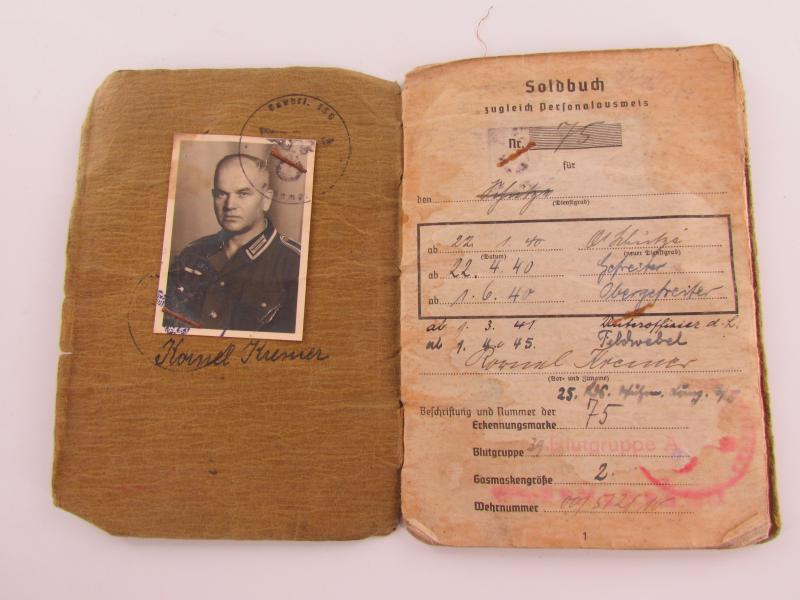 Kornel Kremer
Soldbuch
zugleich Personalausweis
Nr. 75
für
den Schütze
(Dienstgrad)
ab 22. 1. 40
(Datum) (neuer Dienstgrad)
ab 22. 4. 40 Gefreiter
ab 1. 6. 40 Obergefreiter
ab 1. 3. 41 Unteroffizier d. L.
ab 1. 4. 45. Feldwebel
Kornel Kremer
(Vor- und Zuname)
25.
Beschriftung und Nummer der
Erkennungsmarke 75
Blutgruppe Blutgruppe A
Gasmaskengröße 2.
Wehrnummer
1